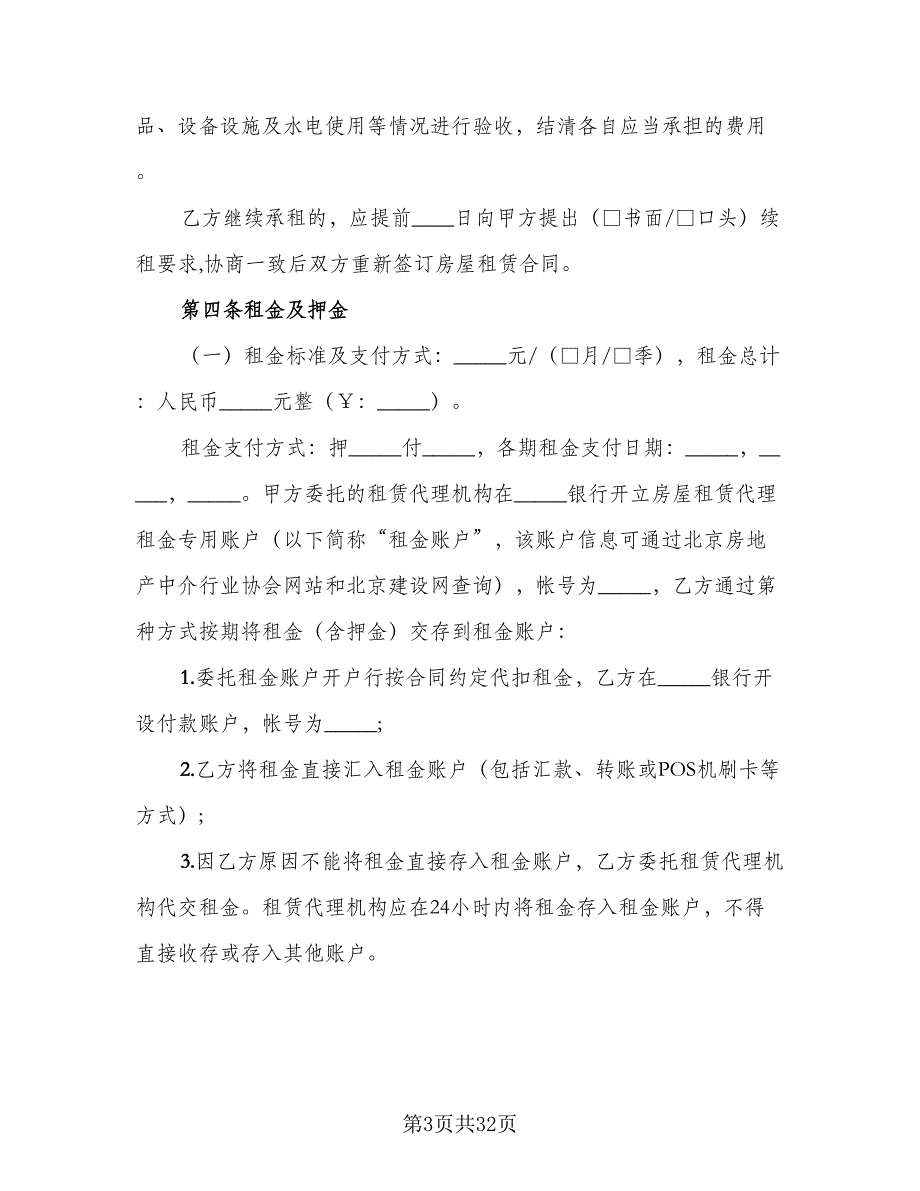 品、设备设施及水电使用等情况进行验收，结清各自应当承担的费用
。
乙方继续承租的，应提前____日向甲方提出（□书面/□口头）续
租要求,协商一致后双方重新签订房屋租赁合同。
第四条租金及押金
（一）租金标准及支付方式：_____元/（□月/□季），租金总计
：人民币_____元整（￥：_____）。
租金支付方式：押_____付_____，各期租金支付日期：_____，__
___，_____。甲方委托的租赁代理机构在_____银行开立房屋租赁代理
租金专用账户（以下简称“租金账户”，该账户信息可通过北京房地
产中介行业协会网站和北京建设网查询），帐号为_____，乙方通过第
种方式按期将租金（含押金）交存到租金账户：
1.委托租金账户开户行按合同约定代扣租金，乙方在_____银行开
设付款账户，帐号为_____;
2.乙方将租金直接汇入租金账户（包括汇款、转账或POS机刷卡等
方式）;
3.因乙方原因不能将租金直接存入租金账户，乙方委托租赁代理机
构代交租金。租赁代理机构应在24小时内将租金存入租金账户，不得
直接收存或存入其他账户。
第3页共32页